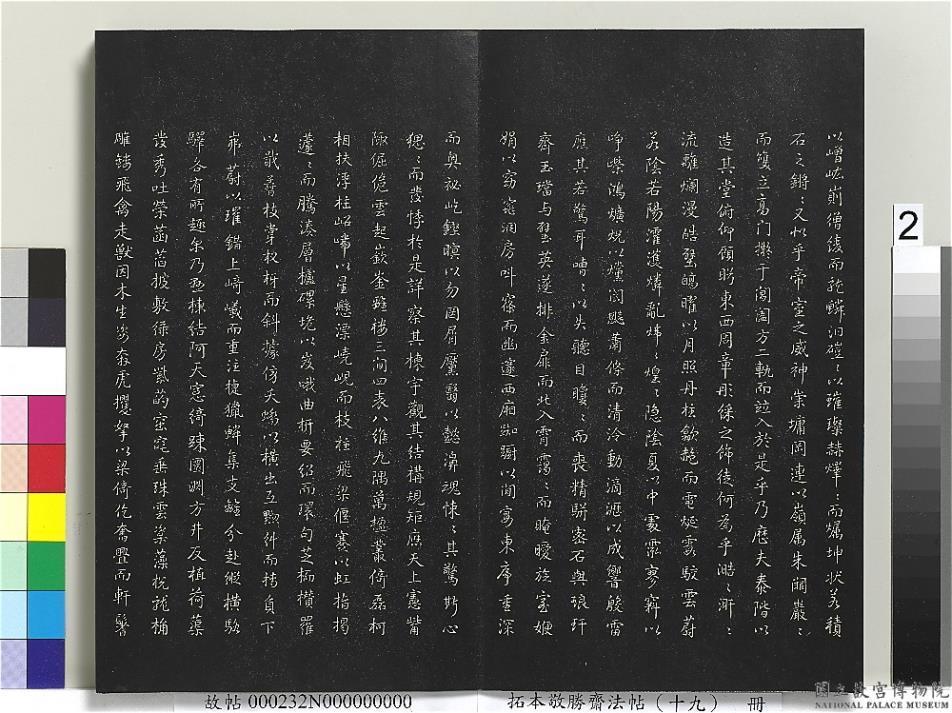 以嶒嵫崱繒綾而龍鱗汩磑〻以璀璨赫燡〻而爥坤狀若積
石之鏘〻又似乎帝室之威神崇墉岡連以嶺屬朱闕巖〻
而雙立高門擬于閶闔方二軌而並入於是乎乃歷夫泰階以
造其堂俯仰顧眄東西周章彤彩之飾徒何為乎澔〻涆〻
流離爛漫皓壁皜曜以月照丹柱歙赩而電烻霞駮雲蔚
若陰若陽瀖濩燐亂煒〻煌〻隱陰夏以中處霐寥窲以
崢嶸鴻爌炾以爣閬飋蕭條而清泠動滴瀝以成響殷雷
應其若驚耳嘈〻以失聽目矎〻而喪精駢密石與琅玕
齊玉璫與璧英遂排金扉而北入霄靄〻而晻曖旋室㛹
娟以窈窕洞房叫窱而幽邃西廂踟躕以閑宴東序重深
而奧祕屹鏗瞑以勿罔屑黶翳以懿濞魂悚〻其驚斯心
𤟧〻而發悸於是詳察其棟宇觀其結構規矩應天上憲觜
陬倔佹雲起嶔崟離樓三間四表八維九隅萬楹叢倚磊砢
相扶浮柱岧嵽以星懸漂嶢峴而枝柱飛梁偃蹇以虹指揭
蘧〻而騰湊層櫨磥垝以岌峨曲枅要紹而環句芝栭欑羅
以戢孴枝掌杈枒而斜據傍夭蟜以橫出互黝糾而搏負下
岪蔚以璀錯上崎嶬而重注捷獵鱗集支離分赴縱橫駱
驛各有所趣尔乃懸棟結阿天窗綺疎圓淵方井反植荷蕖
發秀吐榮菡萏披敷綠房紫菂窋窀垂珠雲楶藻梲龍桷
雕鏤飛禽走獸因木生姿奔虎攫挐以梁倚仡奮舋而軒鬐
2
故帖 000232N000000000
拓本敬勝齋法帖（十九） 冊
國立故宮博物院
NATIONAL PALACE MUSEUM